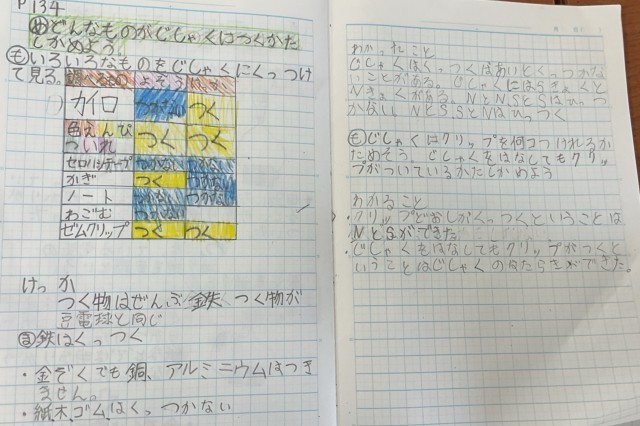 P134
めどんなものがじしゃくにつくかた
しかめよう。
もいろいろなものをじしゃくにくっつけ
て見る。
調べるもの よそう けっか
カイロ つかない つく
色えんぴ
ついれ つく つく
セロハンテープ つかない つかない
かぎ つく つかない
ノート つかない つかない
わごむ つかない
ゼムクリップ つく つく
けっか
つく物はぜんぶ鉄 つく物が
豆電球と同じ
鉄はくっつく
・金ぞくでも銅、アルミニウムはつき
ません。
・紙、木、ゴムはくっつかない
わかったこと
じしゃくはくっつくばあいとくっつかな
いことがある。じしゃくにはSきょくと
Nきょくがある。NとN、SとSはくっつ
かない。NとS、SとNはくっつく
もじしゃくはクリップを何コつけれるか
ためそう。じしゃくをはなしてもクリッ
プがついているかたしかめよう
わかること
・クリップどおしがくっつくということは
NとSができた。
・じしゃくをはなしてもクリップがつくと
いうことはじしゃくのはたらきができた。